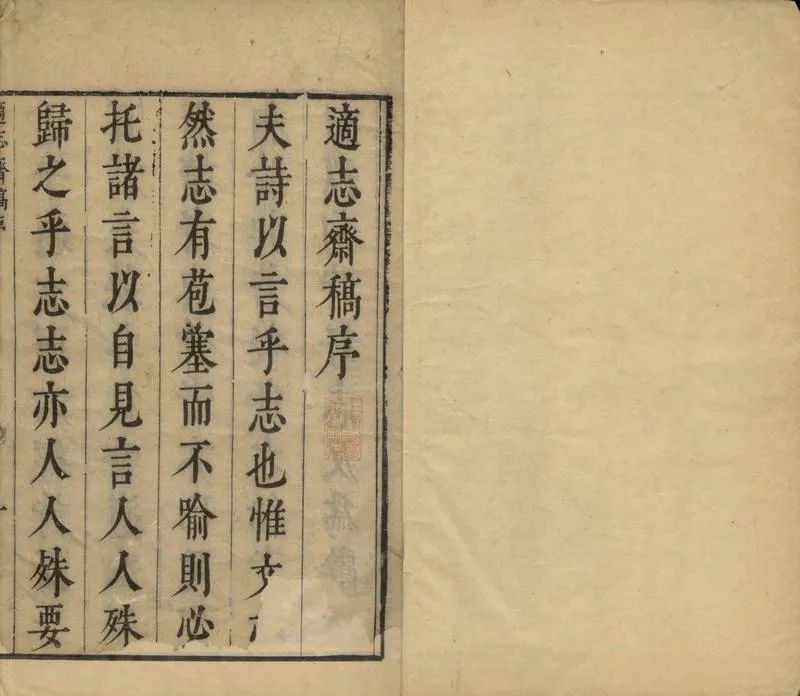 適志齋稿序
夫詩以言乎志也惟
然志有苞塞而不喻則必
托諸言以自見言人人殊
歸之乎志志亦人人殊要
適志齋稿序